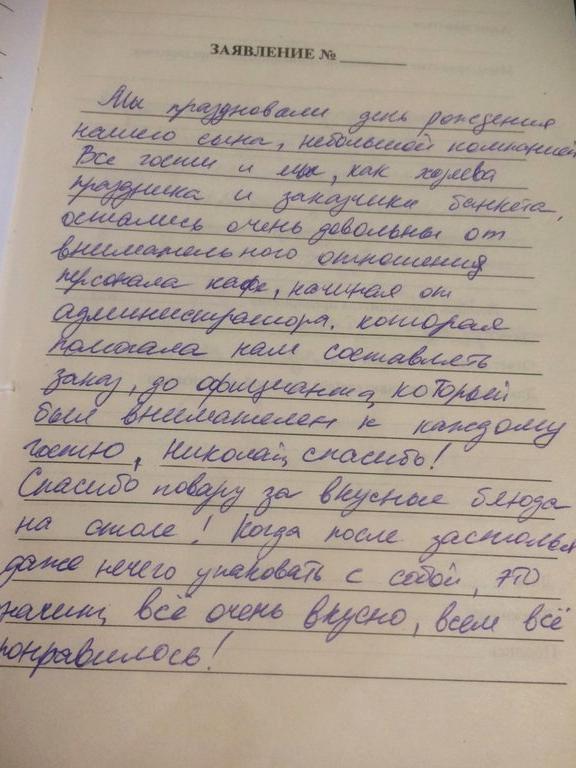 ЗАЯВЛЕНИЕ № ______
Мы праздновали день рождения
нашего сына, небольшой компанией
Все гости и мы, как хозяева
праздника и заказчики банкета,
остались очень довольны от
внимательного отношения
персонала кафе, начиная от
администратора, которая
помогала нам составлять
заказ, до официанта, который
был внимателен к каждому
гостю, Николай, спасибо!
Спасибо повару за вкусные блюда
на столе! Когда после застолья
даже нечего упаковать с собой, это
значит, всё очень вкусно, всем всё
понравилось!